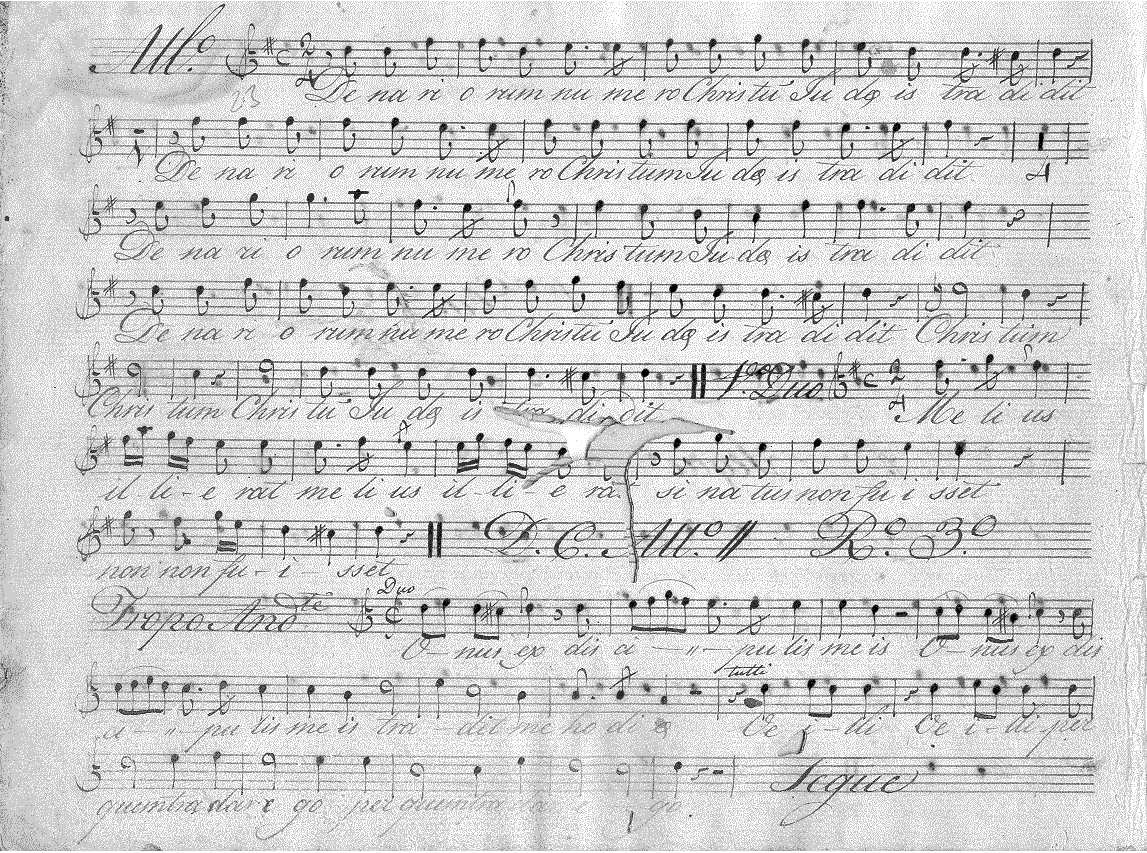 All.o De na ri o rum nu me ro Chris tū Ju dæ is tra di dit
23
De na ri o rum nu me ro Chris tum Ju dæ is tra di dit 4
De na ri o rum nu me ro Chris tum Ju dæ is tra di dit
De na ri o rum nu me ro Chris tū Ju dæ is tra di dit Chris tum
1.o Duo
Chris tum Chris tū Ju dæ is tra di dit Me li us
il - li - e rat me li us il - li - e ra si na tus non fu i sset
D. C. All.o // R.o 3.o
non non fu - i - sset
Tropo And.te Duo
O - nus ex dis ci - " - pu lis me is O - nus ex dis
tutti
ci - " - pu lis me is tra - dit me ho di e Væ i - lli Væ i - lli per
quem tradar e go per quem tradar e go Segue